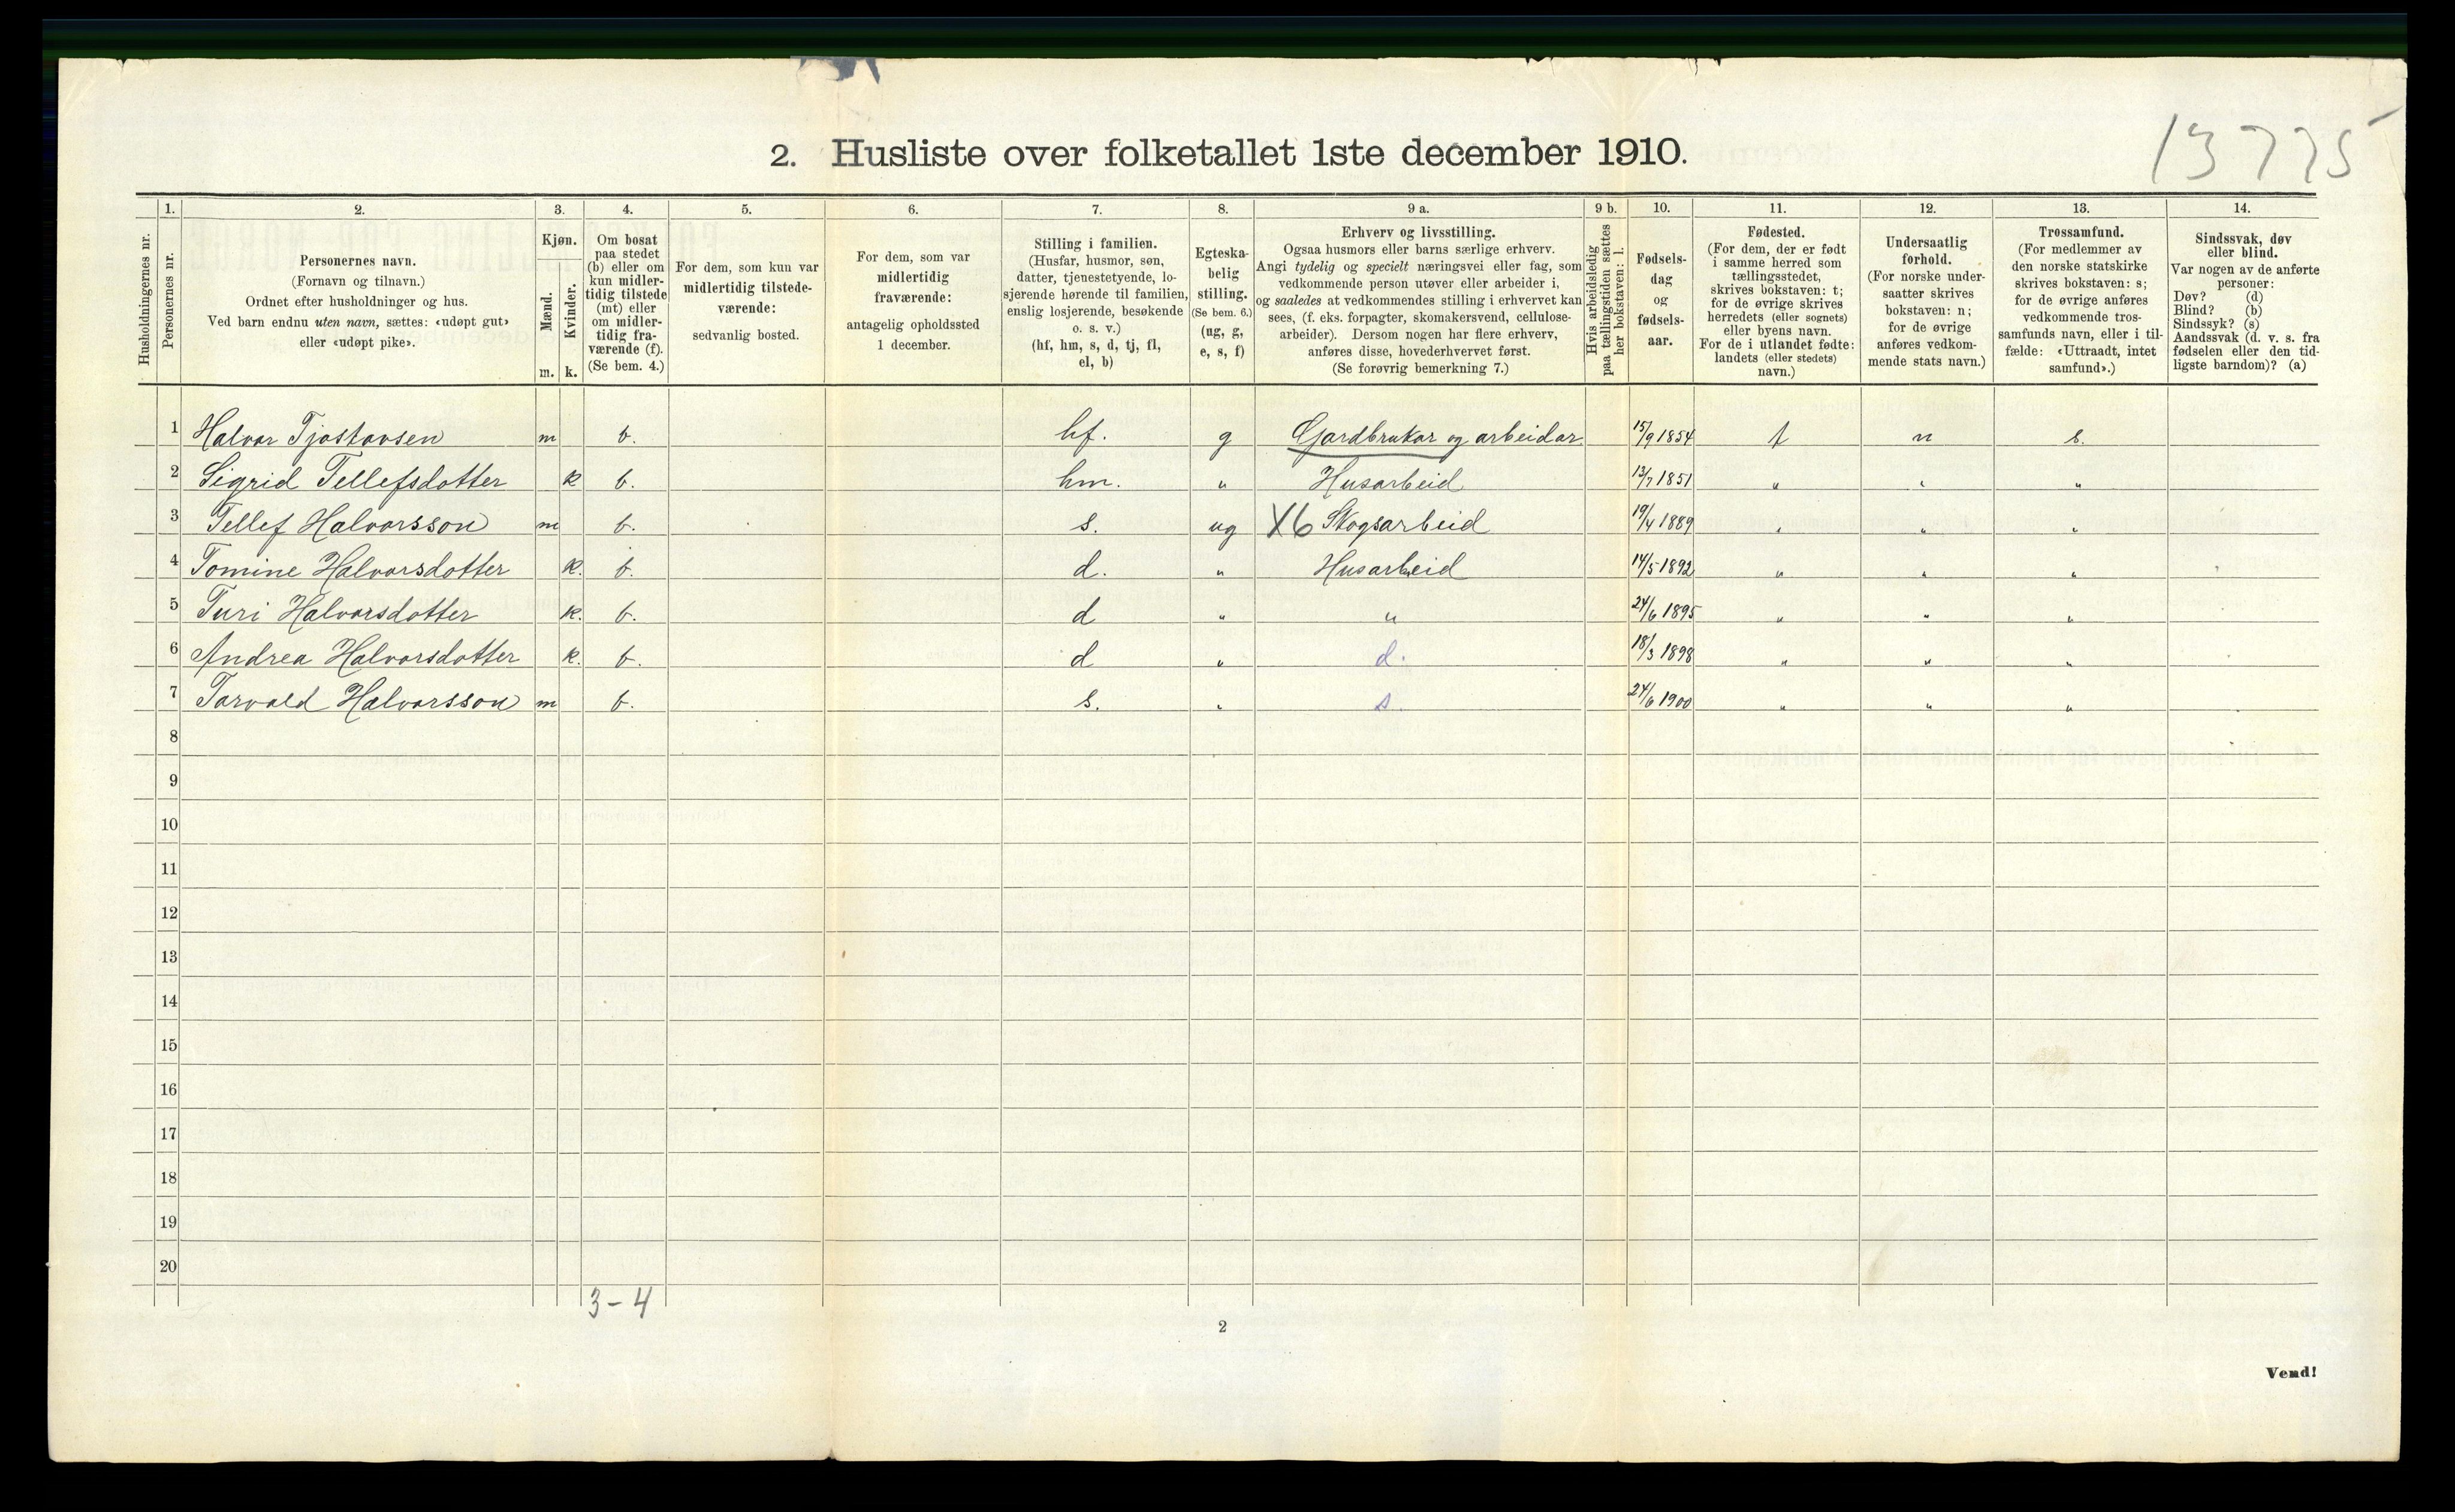 13775
2. Husliste over folketallet 1ste december 1910.
Husholdningernes nr.
1.
Personernes nr.
2.
Personernes navn.
(Fornavn og tilnavn.)
Ordnet efter husholdninger og hus.
Ved barn endnu uten navn, sættes: «udøpt gut»
eller «udøpt pike».
3.
Kjøn.
Mænd.
m.
Kvinder.
k.
4.
Om bosat
paa stedet
(b) eller om
kun midler-
tidig tilstede
(mt) eller
om midler-
tidig fra-
værende (f).
(Se bem. 4.)
5.
For dem, som kun var
midlertidig tilstede-
værende:
sedvanlig bosted.
6.
For dem, som var
midlertidig
fraværende:
antagelig opholdssted
1 december.
7.
Stilling i familien.
(Husfar, husmor, søn,
datter, tjenestetyende, lo-
sjerende hørende til familien,
enslig losjerende, besøkende
o. s. v.)
(hf, hm, s, d, tj, fl,
el, b)
8.
Egteska-
belig
stilling.
(Se bem. 6.)
(ug, g,
e, s, f)
9 a.
Erhverv og livsstilling.
Ogsaa husmors eller barns særlige erhverv.
Angi tydelig og specielt næringsvei eller fag, som
vedkommende person utøver eller arbeider i,
og saaledes at vedkommendes stilling i erhvervet kan
sees, (f. eks. forpagter, skomakersvend, cellulose-
arbeider). Dersom nogen har flere erhverv,
anføres disse, hovederhvervet først.
(Se forøvrig bemerkning 7.)
9 b.
Hvis arbeidsledig
paa tællingstiden sættes
her bokstaven: l.
10.
Fødsels-
dag
og
fødsels-
aar.
11.
Fødested.
(For dem, der er født
i samme herred som
tællingsstedet,
skrives bokstaven: t;
for de øvrige skrives
herredets (eller sognets)
eller byens navn.
For de i utlandet fødte:
landets (eller stedets)
navn.)
12.
Undersaatlig
forhold.
(For norske under-
saatter skrives
bokstaven: n;
for de øvrige
anføres vedkom-
mende stats navn.)
13.
Trossamfund.
(For medlemmer av
den norske statskirke
skrives bokstaven: s;
for de øvrige anføres
vedkommende tros-
samfunds navn, eller i til-
fælde: «Uttraadt, intet
samfund».)
14.
Sindssvak, døv
eller blind.
Var nogen av de anførte
personer:
Døv? (d)
Blind? (b)
Sindssyk? (s)
Aandssvak (d. v. s. fra
fødselen eller den tid-
ligste barndom)? (a)
1 Halvor Tjostovsen m b. hf. g Gardbrukar og arbeidar 15/9 1854 t n s.
2 Sigrid Tellefsdotter k b. hm. " Husarbeid 13/7 1851 " " "
3 Tellef Halvorsson m b. s. ug X6 Skogsarbeid 19/4 1889 " " "
4 Tomine Halvorsdotter k. b. d. " Husarbeid 14/5 1892 " " "
5 Turi Halvorsdotter k. b. d " " 24/6 1895 " " "
6 Andrea Halvorsdotter k. b. d " d. 18/3 1898 " " "
7 Torvald Halvorsson m b. s. " s. 24/6 1900 " " "
8
9
10
11
12
13
14
15
16
17
18
19
20
3-4
2
Vend!